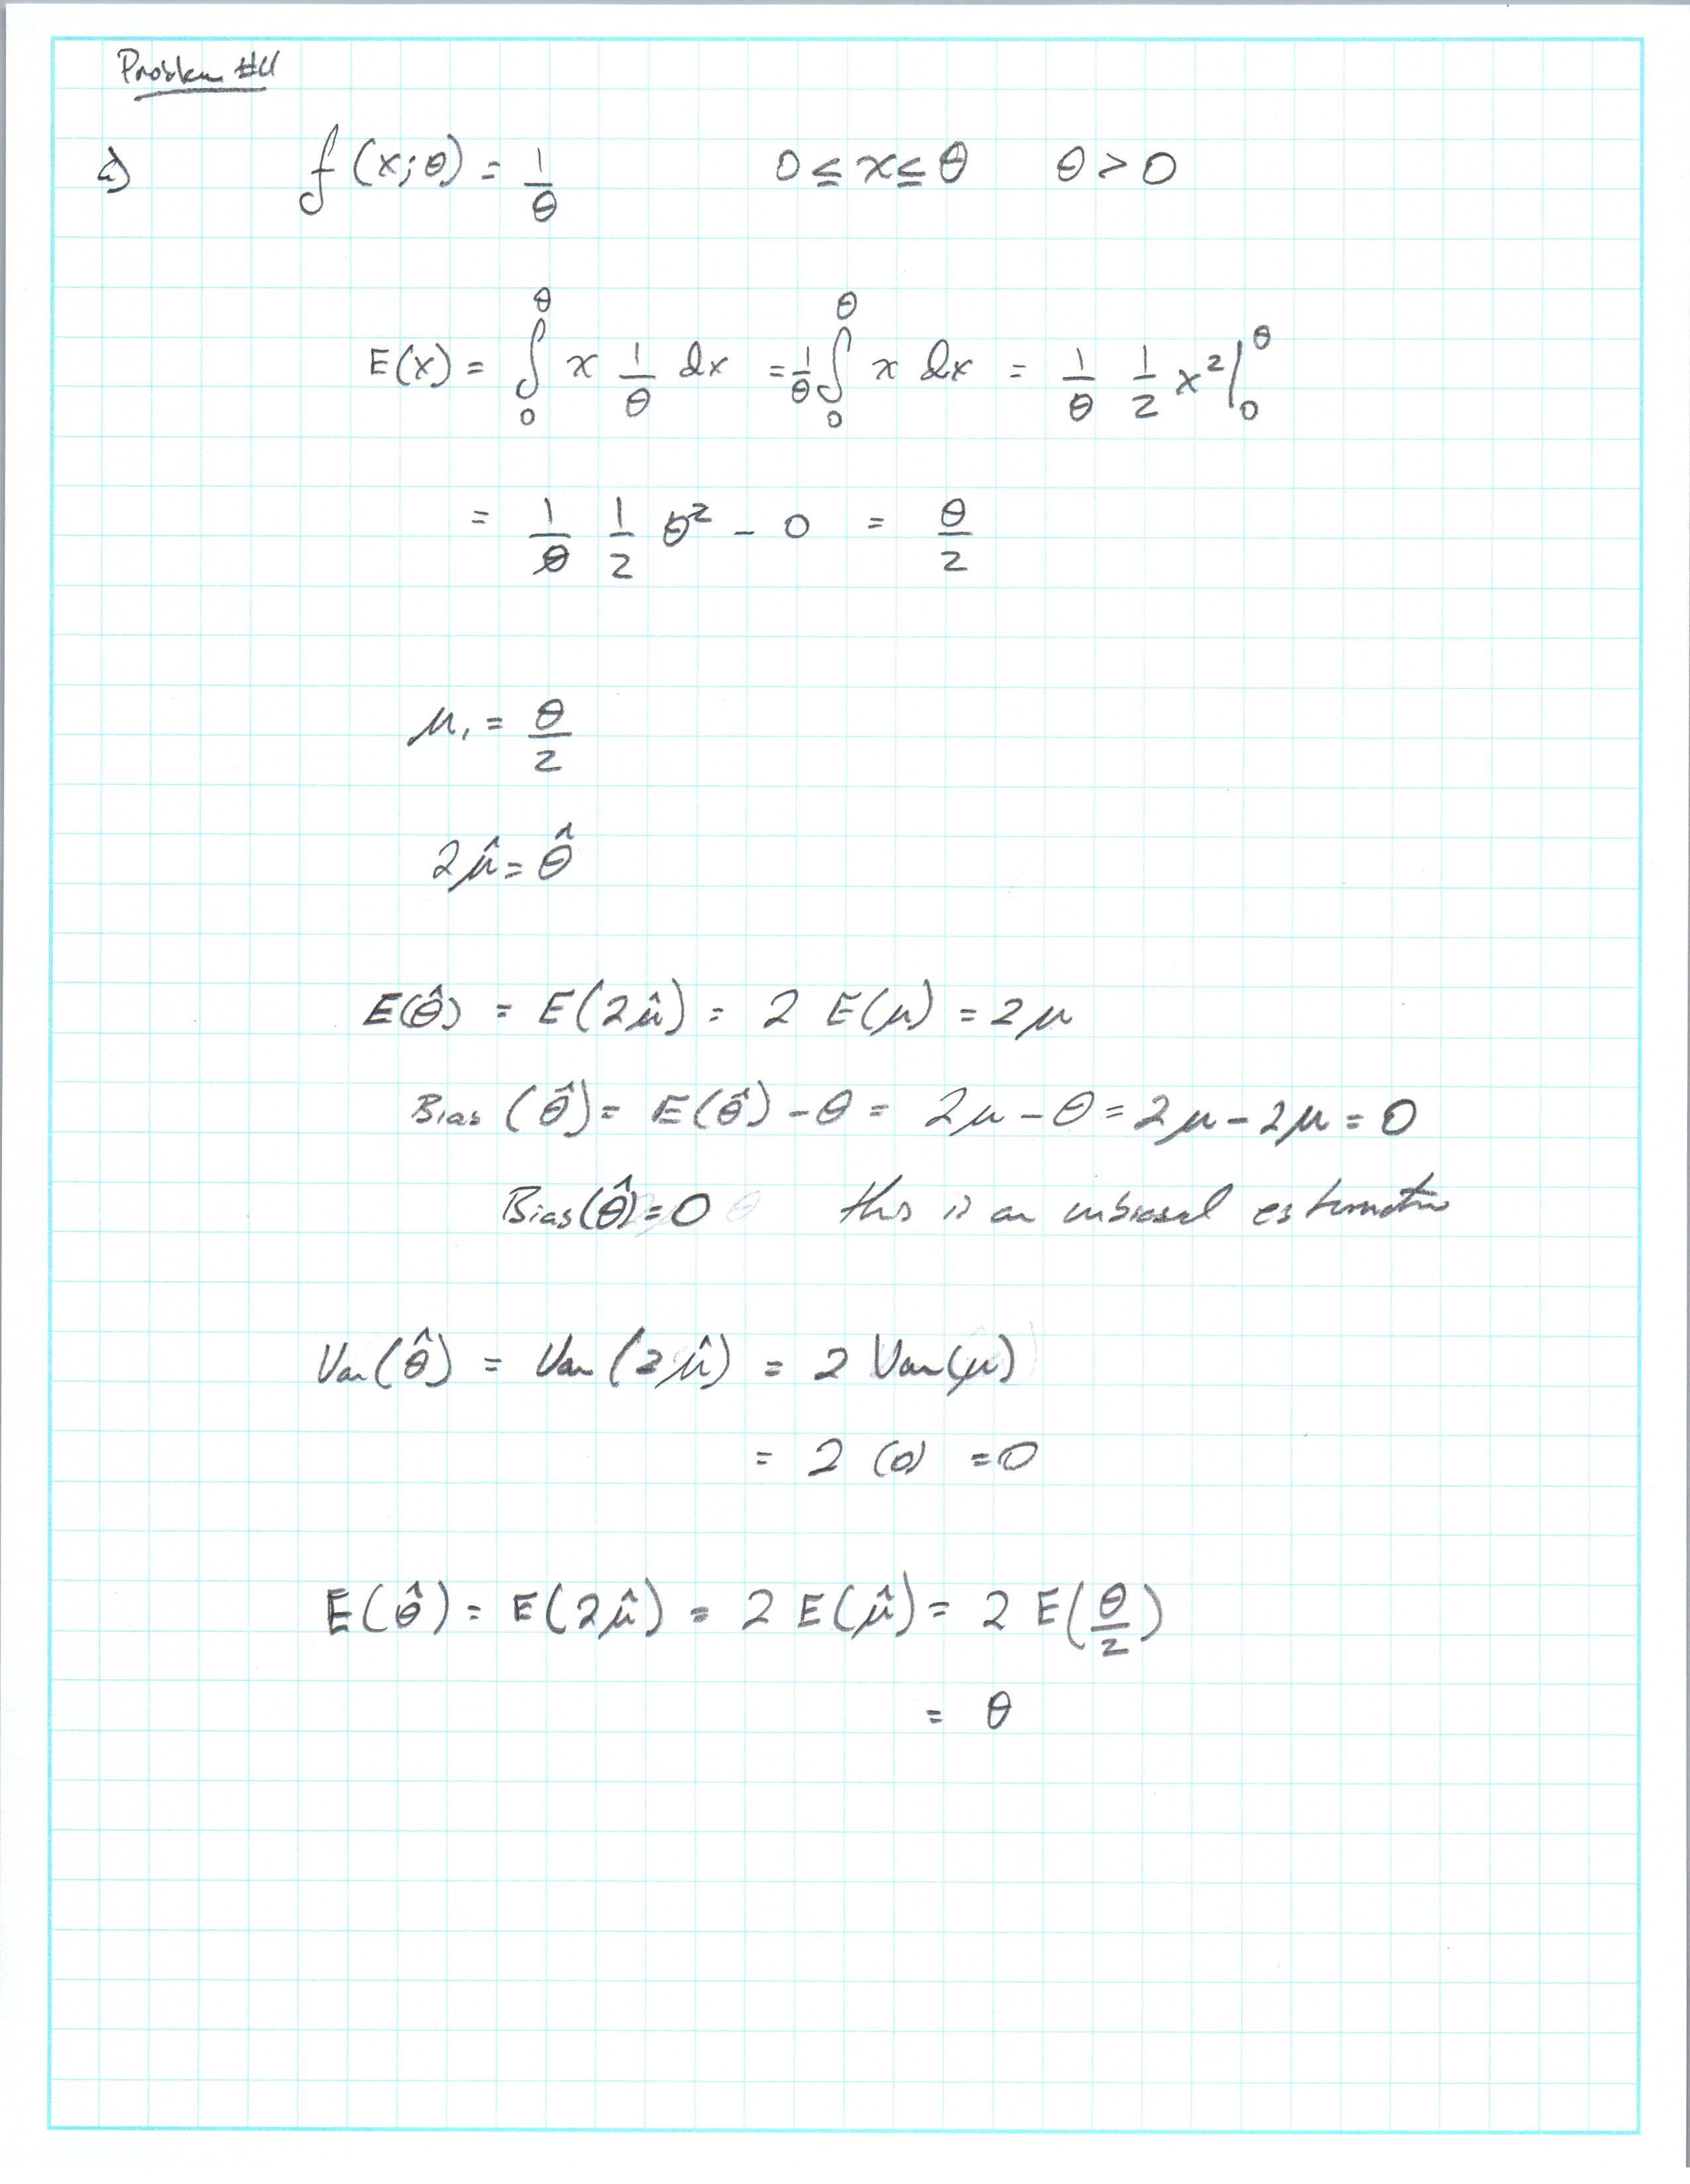 Problem #4
a) f(x;θ) = 1/θ 0 ≤ x ≤ θ θ > 0
E(x) = ∫₀^θ x 1/θ dx = 1/θ ∫₀^θ x dx = 1/θ 1/2 x² |₀^θ
= 1/θ 1/2 θ² - 0 = θ/2
μ₁ = θ/2
2μ̂ = θ̂
E(θ̂) = E(2μ̂) = 2 E(μ) = 2μ
Bias (θ̂) = E(θ̂) - θ = 2μ - θ = 2μ - 2μ = 0
Bias(θ̂) = 0 this is an unbiased estimator
Var(θ̂) = Var(2μ̂) = 2 Var(μ)
= 2 (0) = 0
E(θ̂) = E(2μ̂) = 2 E(μ̂) = 2 E(θ/2)
= θ